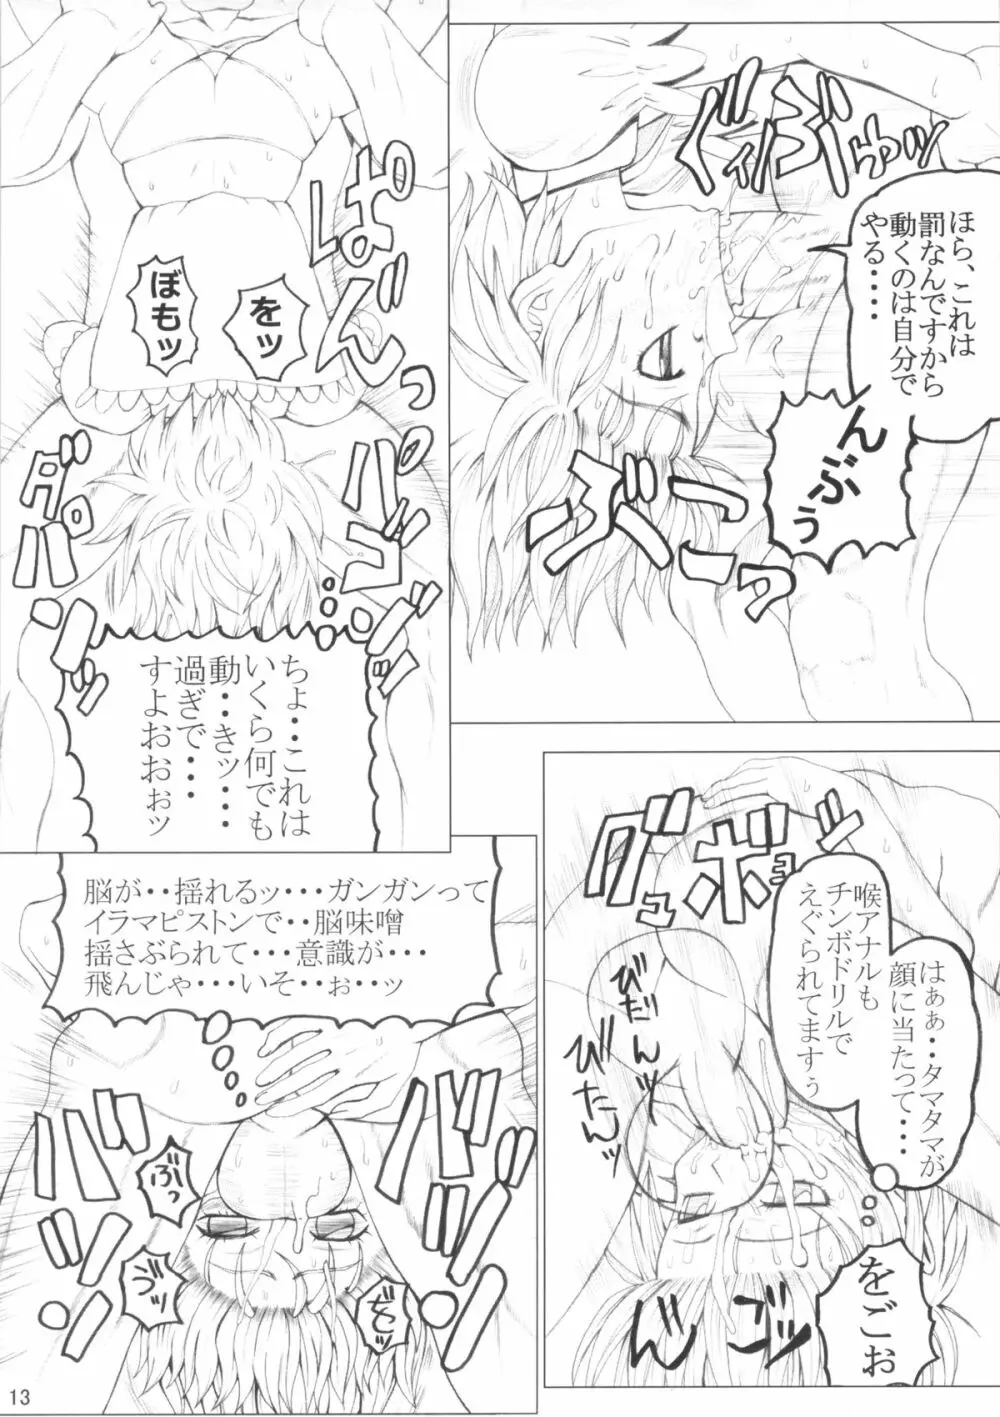 ほら、これは
罰なんですから
動くのは自分で
やる・・・・
ぐぃぶゅゅッ
んぶぅ
ぶーっ
ぱんっ
をッ
ぼもッ
ダパンッ
パゴンッ
ちょ・・これは
いくら何でも
動・・きッ・・・
過ぎで・・・
すよおおぉッ
グボッ
喉アナルも
チンボドリルで
えぐられてますぅ
はぁぁ・・タマタマが
顔に当たって・・・
びだんッ
びたんッ
をごぉ
脳が・・揺れるッ・・・ガンガンって
イラマピストンで・・脳味噌
揺さぶられて・・・意識が・・・
飛んじゃ・・・いそ・・ぉ・・ッ
ぶっ
ゔッ
13